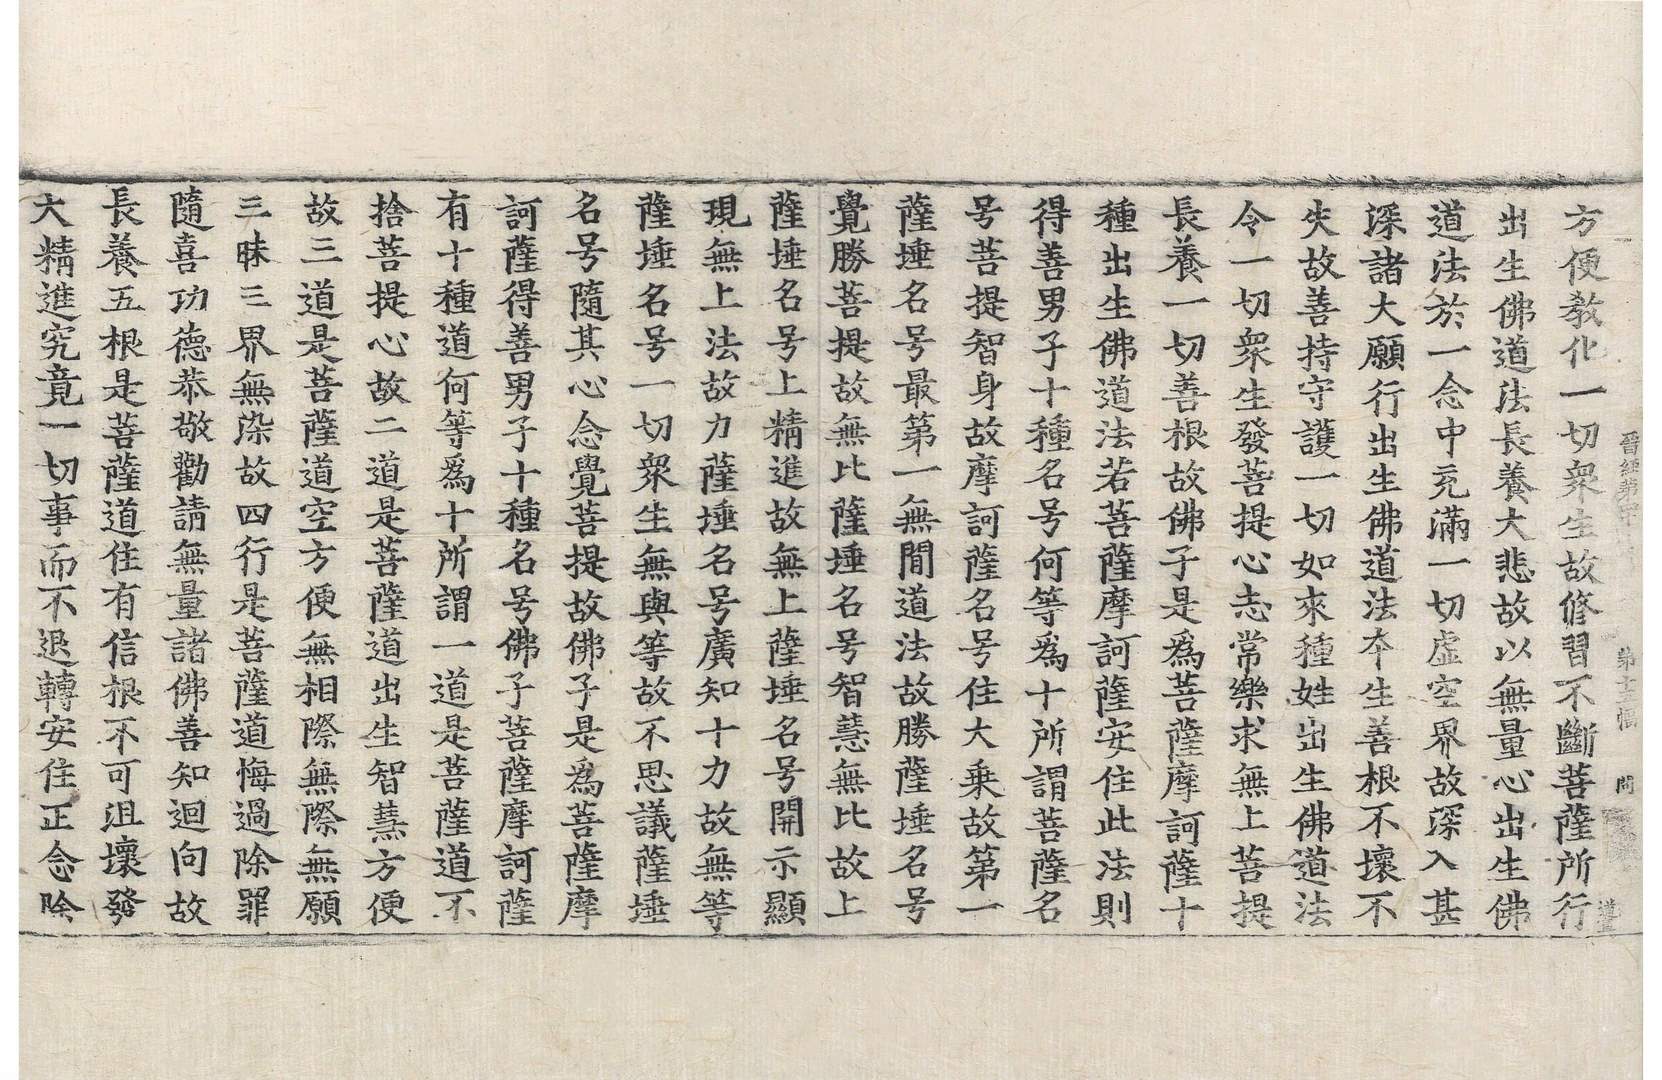 晉經第
第十三幅
間
方便教化一切衆生故修習不斷菩薩所行
出生佛道法長養大悲故以無量心出生佛
道法於一念中充滿一切虛空界故深入甚
深諸大願行出生佛道法本生善根不壞不
失故善持守護一切如來種姓出生佛道法
令一切衆生發菩提心志常樂求無上菩提
長養一切善根故佛子是爲菩薩摩訶薩十
種出生佛道法若菩薩摩訶薩安住此法則
得善男子十種名号何等爲十所謂菩薩名
号菩提智身故摩訶薩名号住大乗故第一
薩埵名号最第一無閒道法故勝薩埵名号
覺勝菩提故無比薩埵名号智慧無比故上
薩埵名号上精進故無上薩埵名号開示顯
現無上法故力薩埵名号廣知十力故無等
薩埵名号一切衆生無與等故不思議薩埵
名号隨其心念覺菩提故佛子是爲菩薩摩
訶薩得善男子十種名号佛子菩薩摩訶薩
有十種道何等爲十所謂一道是菩薩道不
捨菩提心故二道是菩薩道出生智慧方便
故三道是菩薩道空方便無相際無際無願
三昧三界無染故四行是菩薩道悔過除罪
隨喜功德恭敬勸請無量諸佛善知迴向故
長養五根是菩薩道住有信根不可沮壞發
大精進究竟一切事而不退轉安住正念除